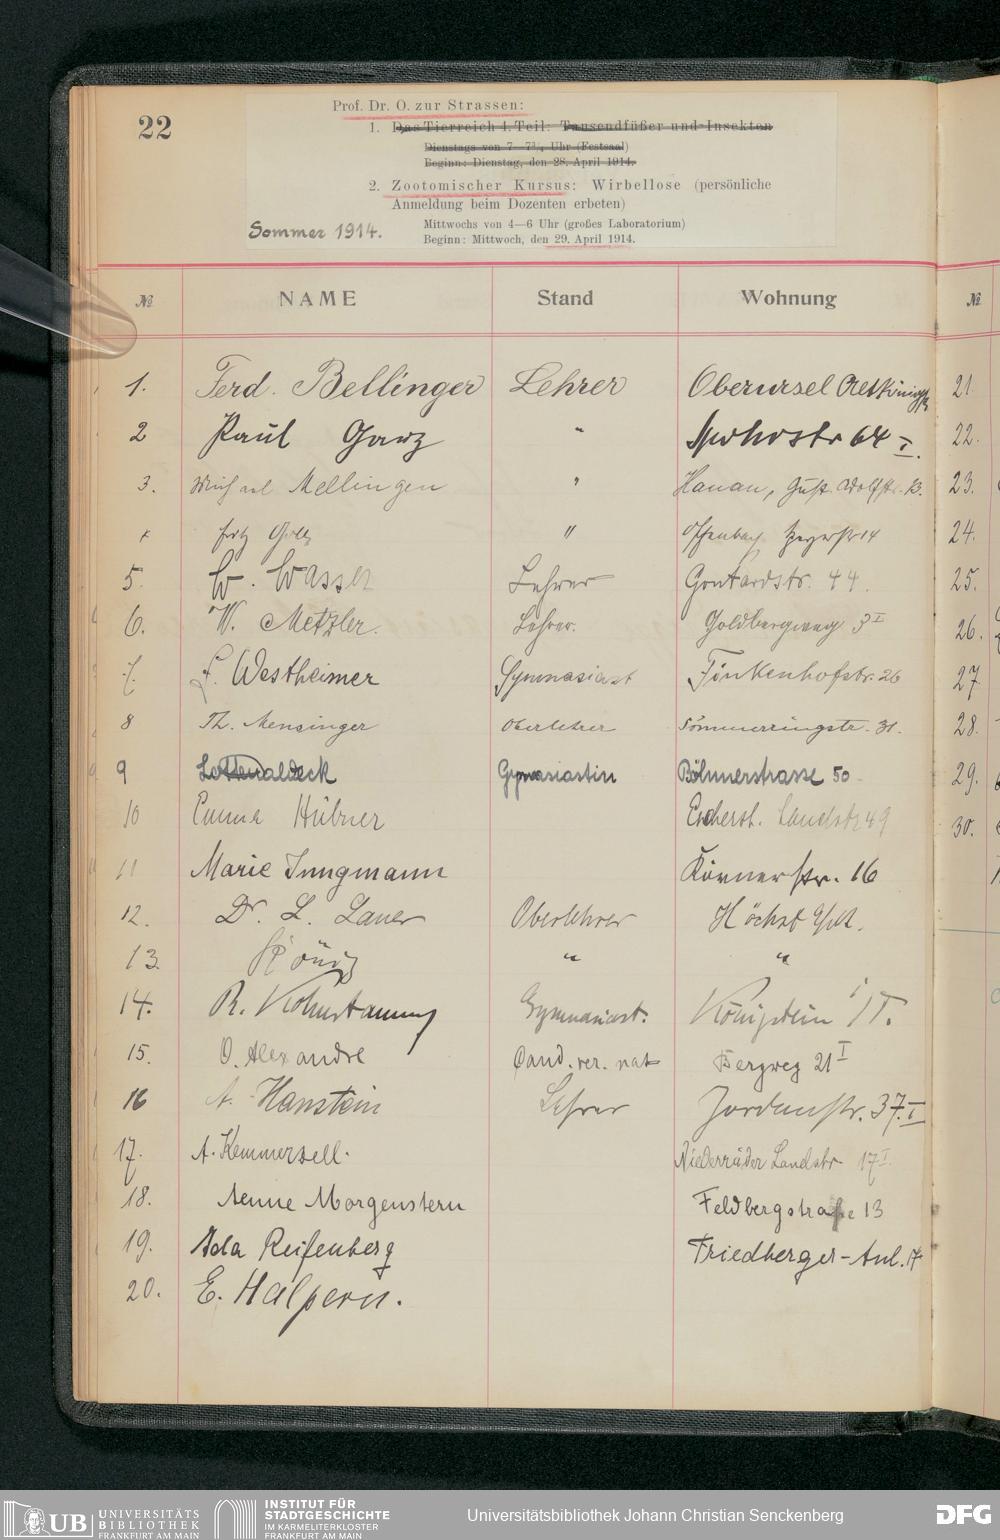 22
Prof. Dr. O. zur Strassen:
1. Das Tierreich 4. Teil: Tausendfüßer und Insekten
Dienstags von 7—7¾ Uhr (Festsaal)
Beginn: Dienstag, den 28. April 1914.
2. Zootomischer Kursus: Wirbellose (persönliche
Anmeldung beim Dozenten erbeten)
Mittwochs von 4—6 Uhr (großes Laboratorium)
Sommer 1914.
Beginn: Mittwoch, den 29. April 1914.
№ NAME Stand Wohnung №
1. Ferd. Bellinger Lehrer Oberursel 21
2 Paul " 64 I. 22.
3. Mellingen " Hanau, 23.
Fritz " Offenbach 14 24.
5. W. Wasser Lehrer Gontardstr. 44. 25.
6. W. Metzler. Lehrer. Goldbergweg 3 I 26.
7. F. Westheimer Gymnasiast Finkenhofstr. 26 27
8 Th. Mensinger Oberlehrer Sömmerringstr. 31. 28.
9 Gymnasiastin Böhmerstrasse 50 29.
10 Emma Hübner Eschersh. Landstr 49 30.
11 Marie Jungmann Körnerstr. 16
12. Dr. L. Lauer Oberlehrer Höchst
13. König " "
14. R. Kohnstamm Gymnasiast. Königstein i/T.
15. O. Alexandre Cand. rer. nat Bergweg 21 I
16 A. Hanstein Lehrer Jordanstr. 37. I
17. A. Kemmerzell. Niederräder Landstr. 17 I.
18. Aenne Morgenstern Feldbergstraße 13
19. Ida Reifenberg Friedberger-Anl. 17
20. E. Halpern.
UB UNIVERSITÄTS
BIBLIOTHEK
FRANKFURT AM MAIN
INSTITUT FÜR
STADTGESCHICHTE
IM KARMELITERKLOSTER
FRANKFURT AM MAIN
Universitätsbibliothek Johann Christian Senckenberg
DFG